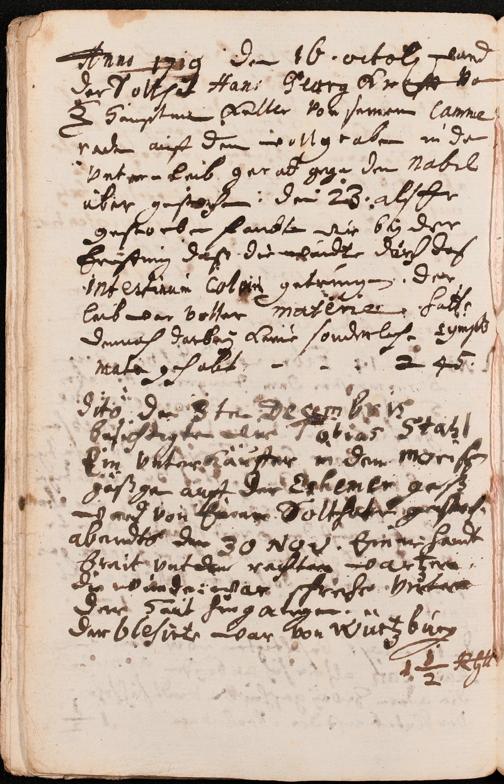 Anno 1719 den 16. octobr ward
der Soltat Hans Georg von
Haupttman Keller von seinem Camme
raden auff dem wollgraben in den
unter Leib gerad gegen den Nabel
über gestochen: den 23. als er
gestorben fandte wir bey der
daß die wundte durch das
intestinum Colon getrungen. der
leib war voller materie hatte
dennoch darbey keine sonderliche Sympto
mata gehabt - - - 2 45.
dito den 3ten Decembris
besichtigte Tobias Stahl
Ein in dem
gäßgen auff der Eschemer gaß
ward von Einem Solthaten gestochen
abendts den 30 Nov. Eine handt
breit unter der rechten wartzen.
die wunde war unter
der Haut hingangen.
der blesirte war von Würtzburg
1 1/2 Rthl